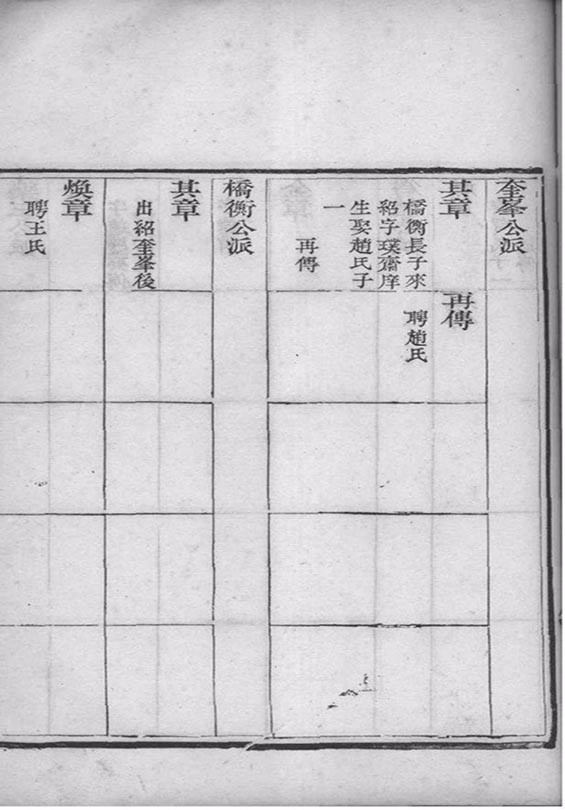 奎峯公派
其章
橋衡長子來
紹字璞齋庠
生娶趙氏子
一
再傳
再傳
聘趙氏
橋衡公派
其章
出紹奎峯後
煥章
聘王氏